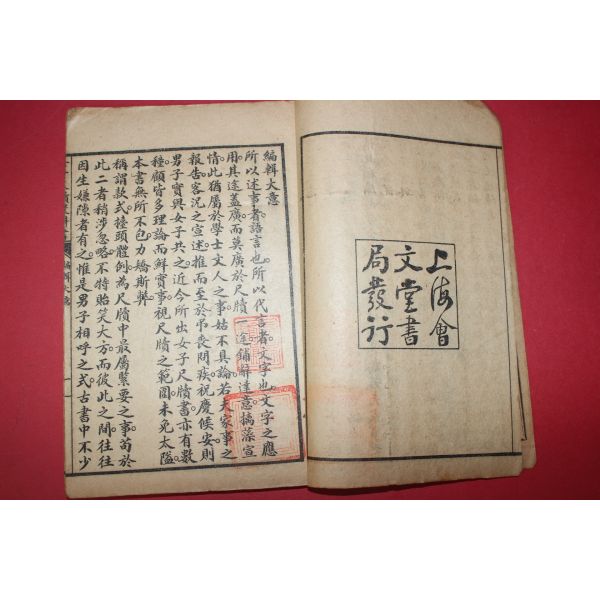 上海會
文堂書
局發行
編輯大意
所以述事者語言也。所以代言者。文字也。文字之應
用。其途蓋廣。而莫廣於尺牘一途。鋪辭達意。摛藻宣
情。此猶屬於學士文人之事。姑不具論。若夫家事之
報告。客況之宣述。推而至於弔喪問疾。祝慶候安。則
男子實與女子共之。近今所出女子尺牘書。亦有數
種。顧皆多理論而鮮實事。視尺牘之範圍。未免太隘。
本書無所不包。力矯斯弊。
稱謂款式。擡頭體例。為尺牘中最屬緊要之事。茍於
此二者稍涉忽略。不特貽笑大方。而彼此之間。往往
因生嫌隙者有之。惟是男子相呼之式。古書中不少
編輯大意